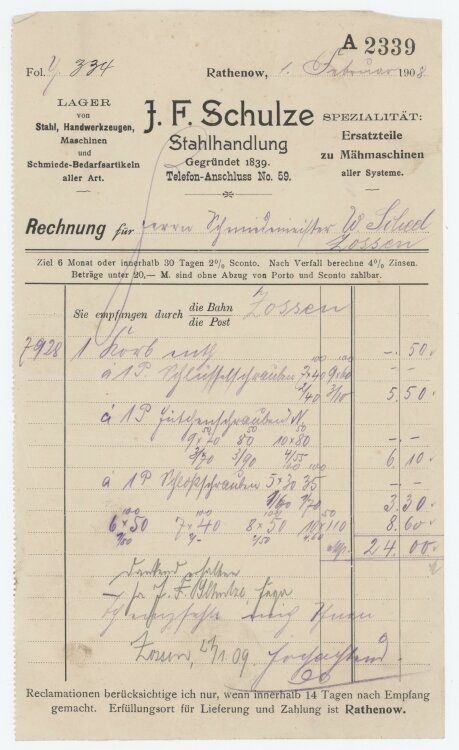 A 2339
Fol. 334
Rathenow, 1. Februar 1908.
LAGER
von
Stahl, Handwerkzeugen,
Maschinen
und
Schmiede-Bedarfsartikeln
aller Art.
J. F. Schulze
Stahlhandlung
Gegründet 1839.
Telefon-Anschluss No. 59.
SPEZIALITÄT:
Ersatzteile
zu Mähmaschinen
aller Systeme.
Rechnung für Herrn Schmiedemeister W
Zossen
Ziel 6 Monat oder innerhalb 30 Tagen 2% Sconto. Nach Verfall berechne 4% Zinsen.
Beträge unter 20,— M. sind ohne Abzug von Porto und Sconto zahlbar.
Sie empfangen durch die Bahn Zossen
die Post
7928 1 Korb enth -. 50.
á 1 P. Schlüsselschrauben
5. 50.
á 1 P
9 x 70 80 10 x 80 -. -
6. 10.
á 1 P Schloßschrauben 5 x 30 35
3. 30.
6 x 50 7 x 40 8 x 50 10 x 110 8. 60.
24. 00.
dankend erhalten
J. F. Schulze
empfehle mich Ihnen
Zossen, 09. Hochachtend
Reclamationen berücksichtige ich nur, wenn innerhalb 14 Tagen nach Empfang
gemacht. Erfüllungsort für Lieferung und Zahlung ist Rathenow.